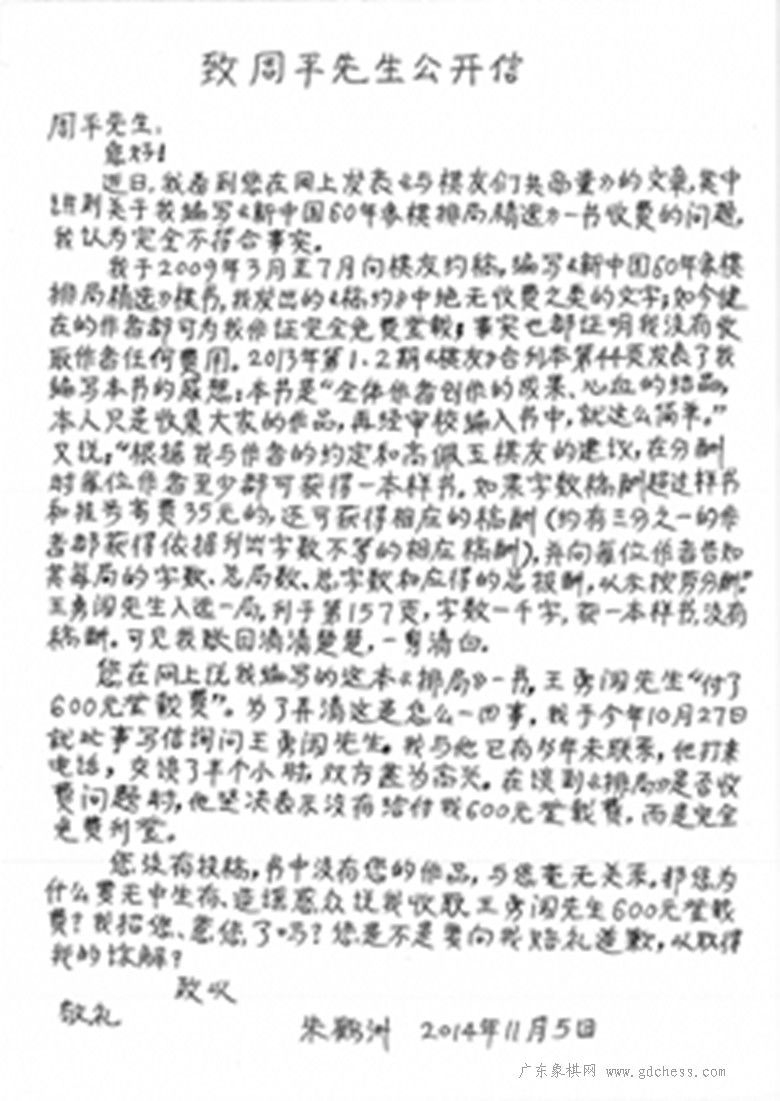 致周平先生公开信
周平先生:
您好!
近日,我看到您在网上发表《与棋友们共商量》的文章,其中
讲到关于我编写《新中国60年象棋排局精选》一书收费的问题,
我认为完全不符合事实。
我于2009年3月至7月向棋友约稿,编写《新中国60年象棋
排局精选》棋书,我发出的《稿约》中绝无收费之类的文字;如今健
在的作者都可为我作证完全免费登载;事实也都证明我没有收
取作者任何费用。2013年第1.2期《棋友》合刊本第44页发表了我
编写本书的感想:本书是“全体作者创作的成果、心血的结晶,
本人只是收集大家的作品,再经审校编入书中,就这么简单。”
又说:“根据我与作者的约定和高佩玉棋友的建议,在分酬
时每位作者至少都可获得一本样书。如果字数稿酬超过样书
和挂号寄费35元的,还可获得相应的稿酬(约有三分之一的作
者都获得依据刊出字数不等的相应稿酬),并向每位作者告知
其每局的字数、总局数、总字数和应得的总报酬,从未按劳分酬。”
王勇闯先生入选一局,刊于第157页,字数一千字,获一本样书,没有
稿酬。可见我账目清清楚楚,一身清白。
您在网上说我编写的这本《排局》一书,王勇闯先生“付了
600元登载费”。为了弄清这是怎么一回事,我于今年10月27日
就此事写信询问王勇闯先生。我与他已有多年未联系,他打来
电话,交谈了半个小时,双方甚为高兴。在谈到《排局》是否收
费问题时,他坚决表示没有给付我600元登载费,而是完全
免费刊登。
您没有投稿,书中没有您的作品,与您毫无关系,那您为
什么要无中生有、造谣惑众说我收取王勇闯先生600元登载
费?我招您、惹您了吗?您是不是要向我赔礼道歉,以取得
我的谅解?
致以
敬礼
朱鹤洲 2014年11月5日
广东象棋网 www.gdchess.com